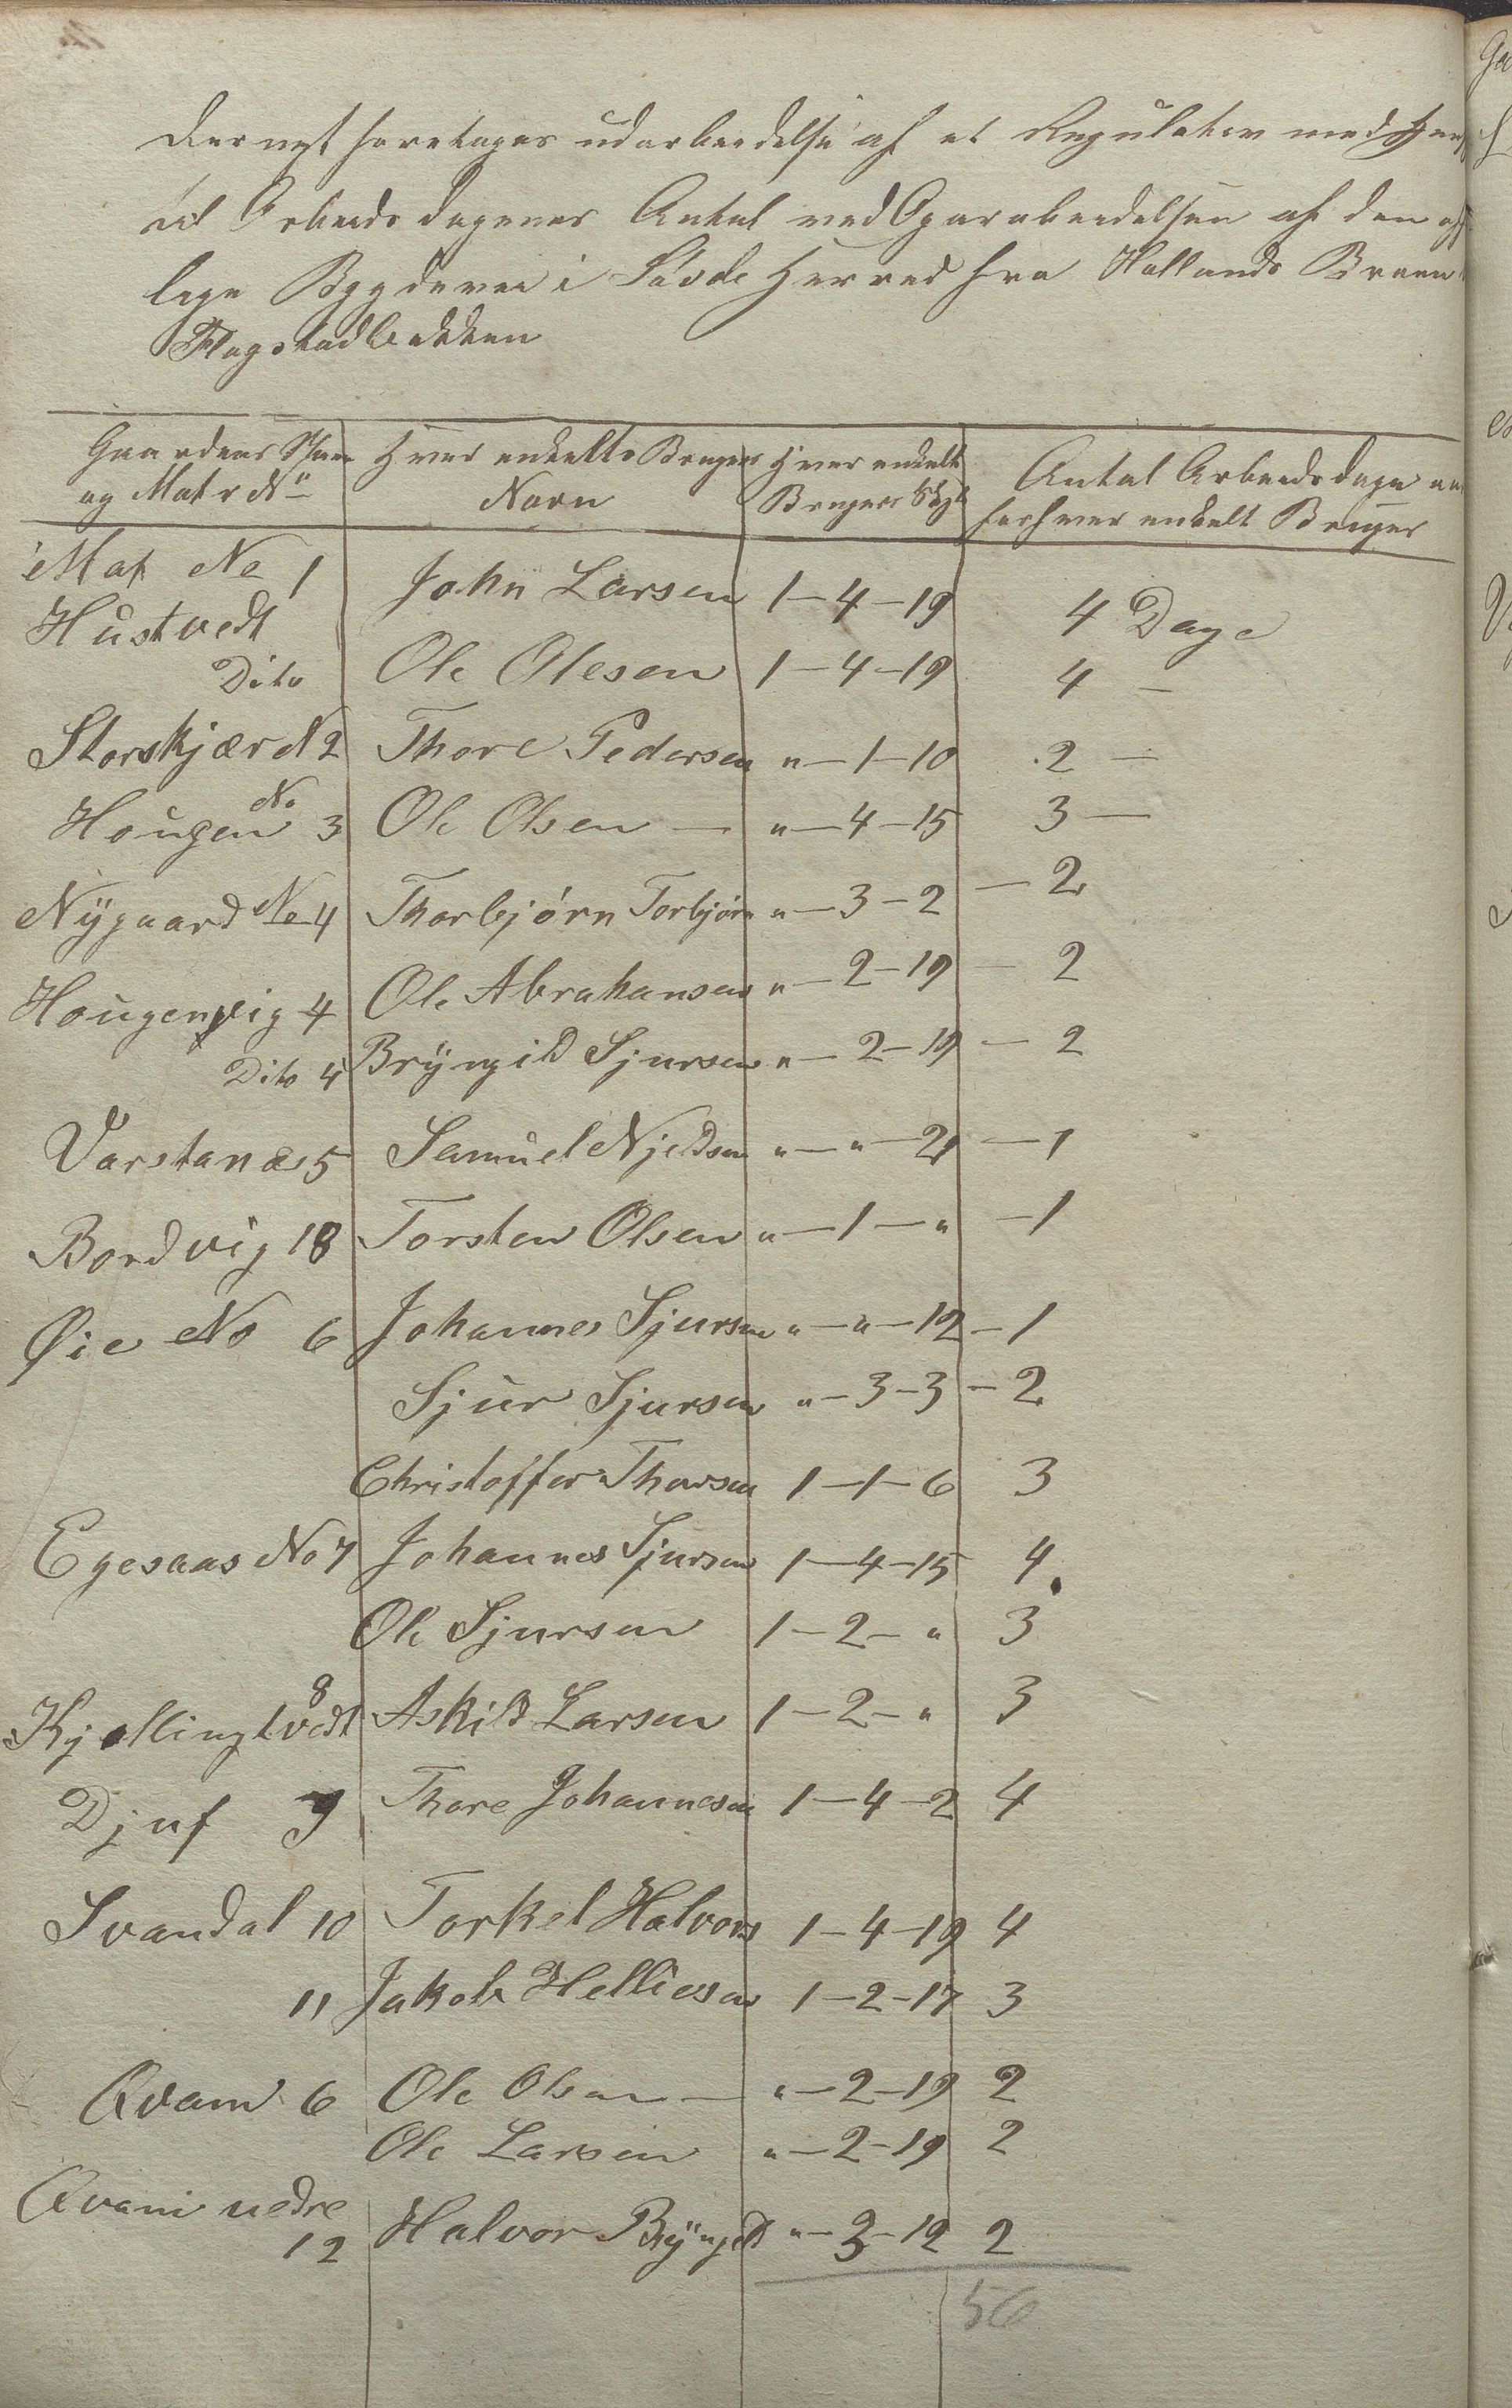 Dernæst foretages udarbeidelse af et Regulativ med Hen
til Arbeidsdagenes Antal ved Oparabeidelsen af den off
lige Bygdevei i Søvde Herred fra Hallands Broen
Flogstadbækken
Gaardens Navn og Matr No
Hver enkelts Brugers Navn
Hver enkelt Brugers Skyld
Antal Arbeidsdage
for hver enkelt Bruger
Mat No 1
Hustvedt John Larsen 1-4-19 4 Dage
Dito Ole Olesen 1-4-19 4 —
Storskjær N 2 Thore Pedersen "-1-10 2 —
Hougen No 3 Ole Olsen — "-4-15 3 —
Nÿgaard No 4 Thorbjørn Torbjørn "-3-2 — 2
Hougenvig 4 Ole Abrahamsen "-2-19 — 2
Dito 4 Brÿngild Sjursen "-2-19 — 2
Varstanæs 5 Samuel Njeldsen "-"-21 — 1
Bordvig 18 Torsten Olsen "-1-" — 1
Øie No 6 Johannes Sjursen "-"-12 — 1
Sjur Sjursen "-3-3 — 2
Christoffer Thorsen 1-1-6 3
Egesaas No 7 Johannes Sjursen 1-4-15 4
Ole Sjursen 1-2-" 3
Kjøllingtvedt 8 Askild Larsen 1-2-" 3
Djuf 9 Thore Johannesen 1-4-2 4
Svandal 10 Torkel Halvors 1-4-19 4
11 Jakob Helliesen 1-2-17 3
Qvam 6 Ole Olsen — "-2-19 2
Ole Larsen "-2-19 2
Qvam nedre
12 Halvor Brÿngild "-3-12 2
56